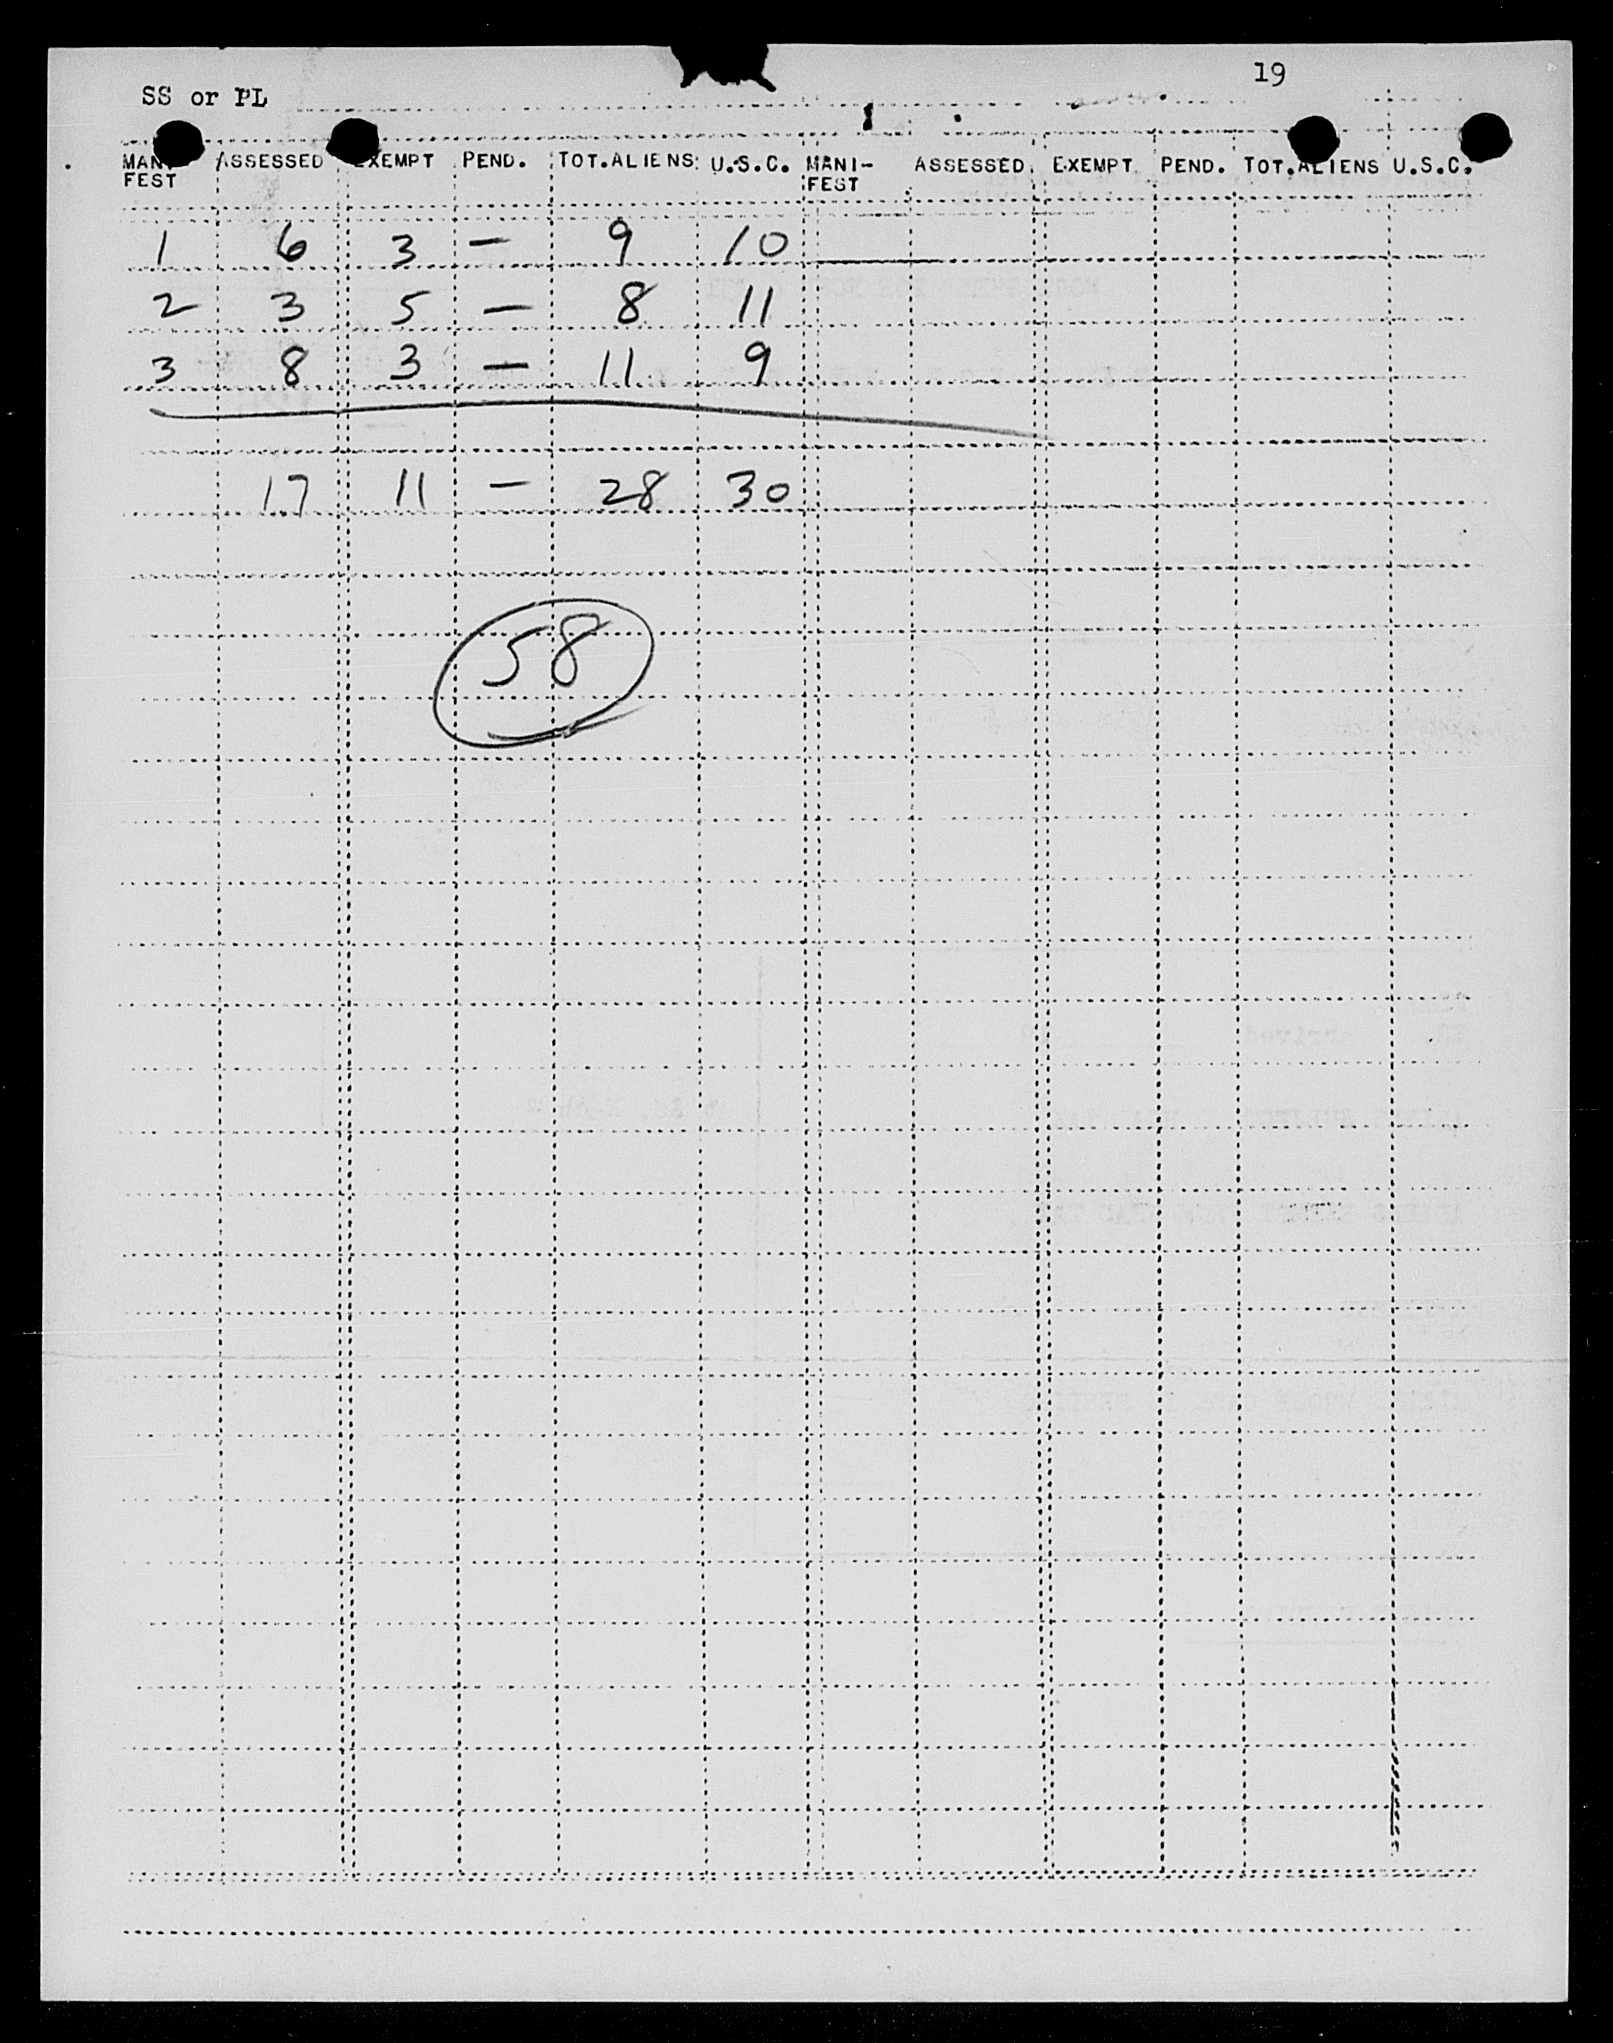 19
SS or PL
MANI- ASSESSED EXEMPT PEND. TOT.ALIENS U.S.C. MANI- ASSESSED EXEMPT PEND. TOT.ALIENS U.S.C.
FEST FEST
1 6 3 — 9 10
2 3 5 — 8 11
3 8 3 — 11 9
17 11 — 28 30
58